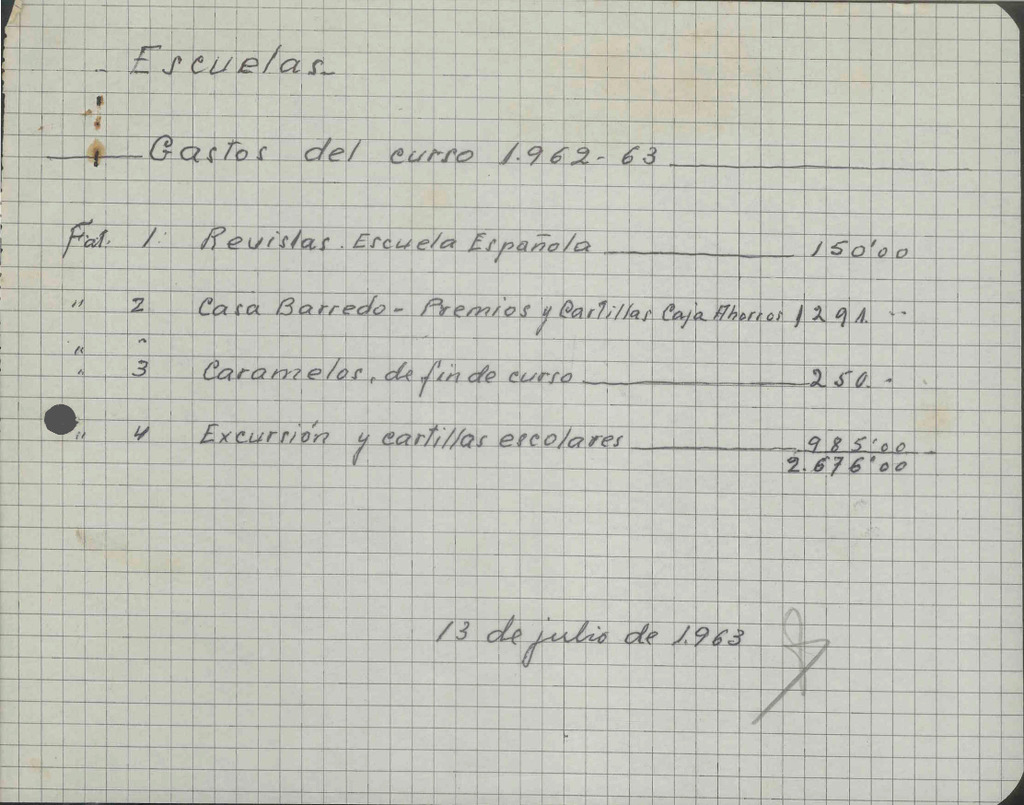 Escuelas
Gastos del curso 1.962-63
Fat. 1: Revistas. Escuela Española 150'00
" 2 Casa Barredo - Premios y Cartillas Caja Ahorros 1291. --
" "
" 3 Caramelos, de fin de curso 250. -
" 4 Excursión y cartillas escolares 985'00
2.676'00
13 de julio de 1.963